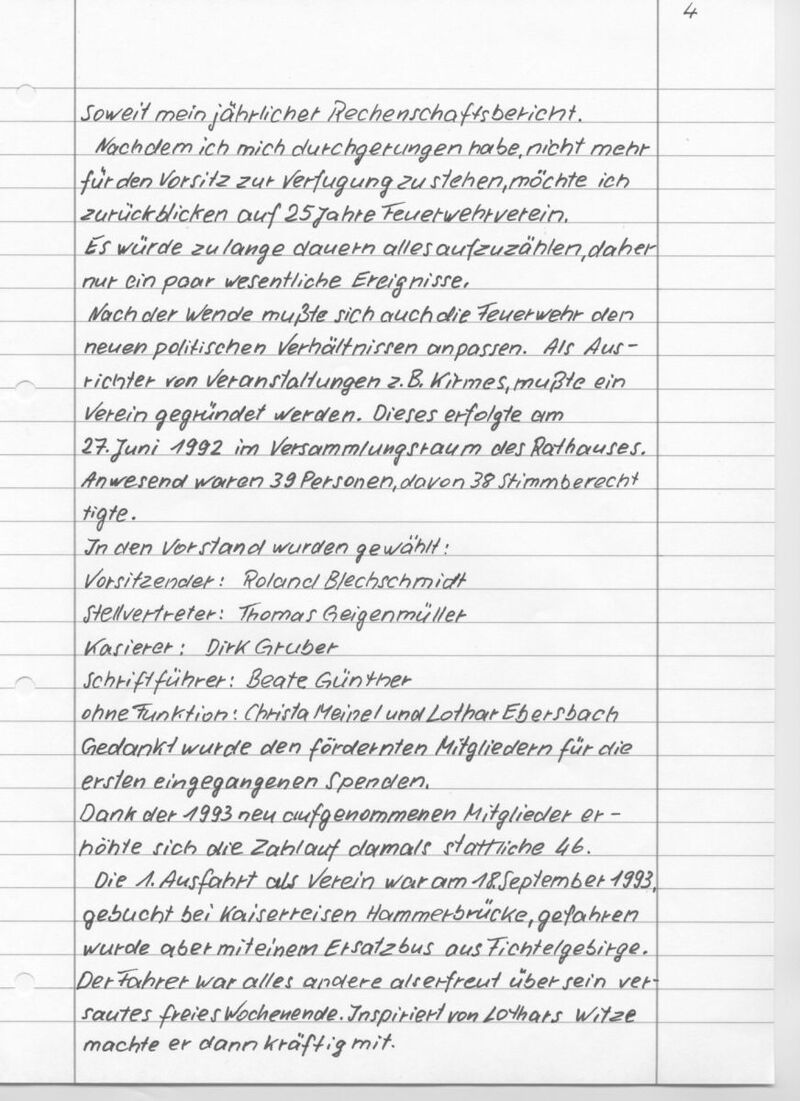 4
Soweit mein jährlicher Rechenschaftsbericht.
Nachdem ich mich durchgerungen habe, nicht mehr
für den Vorsitz zur Verfugung zu stehen, möchte ich
zurückblicken auf 25 Jahre Feuerwehrverein.
Es würde zu lange dauern alles aufzuzählen, daher
nur ein paar wesentliche Ereignisse.
Nach der Wende mußte sich auch die Feuerwehr den
neuen politischen Verhältnissen anpassen. Als Aus-
richter von Veranstaltungen z.B. Kirmes, mußte ein
Verein gegründet werden. Dieses erfolgte am
27. Juni 1992 im Versammlungsraum des Rathauses.
Anwesend waren 39 Personen, davon 38 Stimmberecht
tigte.
In den Vorstand wurden gewählt:
Vorsitzender: Roland Blechschmidt
Stellvertreter: Thomas Geigenmüller
Kasierer: Dirk Gruber
Schriftführer: Beate Günther
ohne Funktion: Christa Meinel und Lothar Ebersbach
Gedankt wurde den fördernten Mitgliedern für die
ersten eingegangenen Spenden.
Dank der 1993 neu aufgenommenen Mitglieder er-
höhte sich die Zahl auf damals stattliche 46.
Die 1. Ausfahrt als Verein war am 18. September 1993,
gebucht bei Kaiserreisen Hammerbrücke, gefahren
wurde aber mit einem Ersatzbus aus Fichtelgebirge.
Der Fahrer war alles andere als erfreut über sein ver-
sautes freies Wochenende. Inspiriert von Lothars Witze
machte er dann kräftig mit.